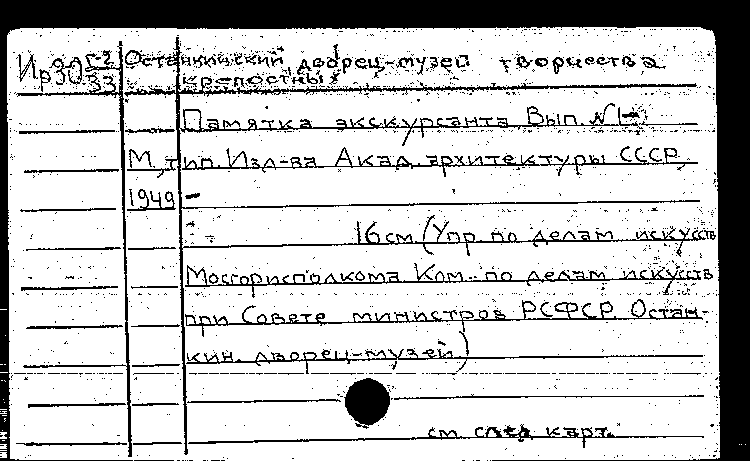 Ир30 г2/33 Останкинский дворец-музей творчества
крепостных
Памятка экскурсанта Вып. №1-
М, тип. Изд-ва Акад. архитектуры СССР,
1949 -
16см. (Упр. по делам искусств
Мосгорисполкома. Ком. по делам искусств
при Совете министров РСФСР. Остан-
кин. дворец-музей)
см. след. карт.